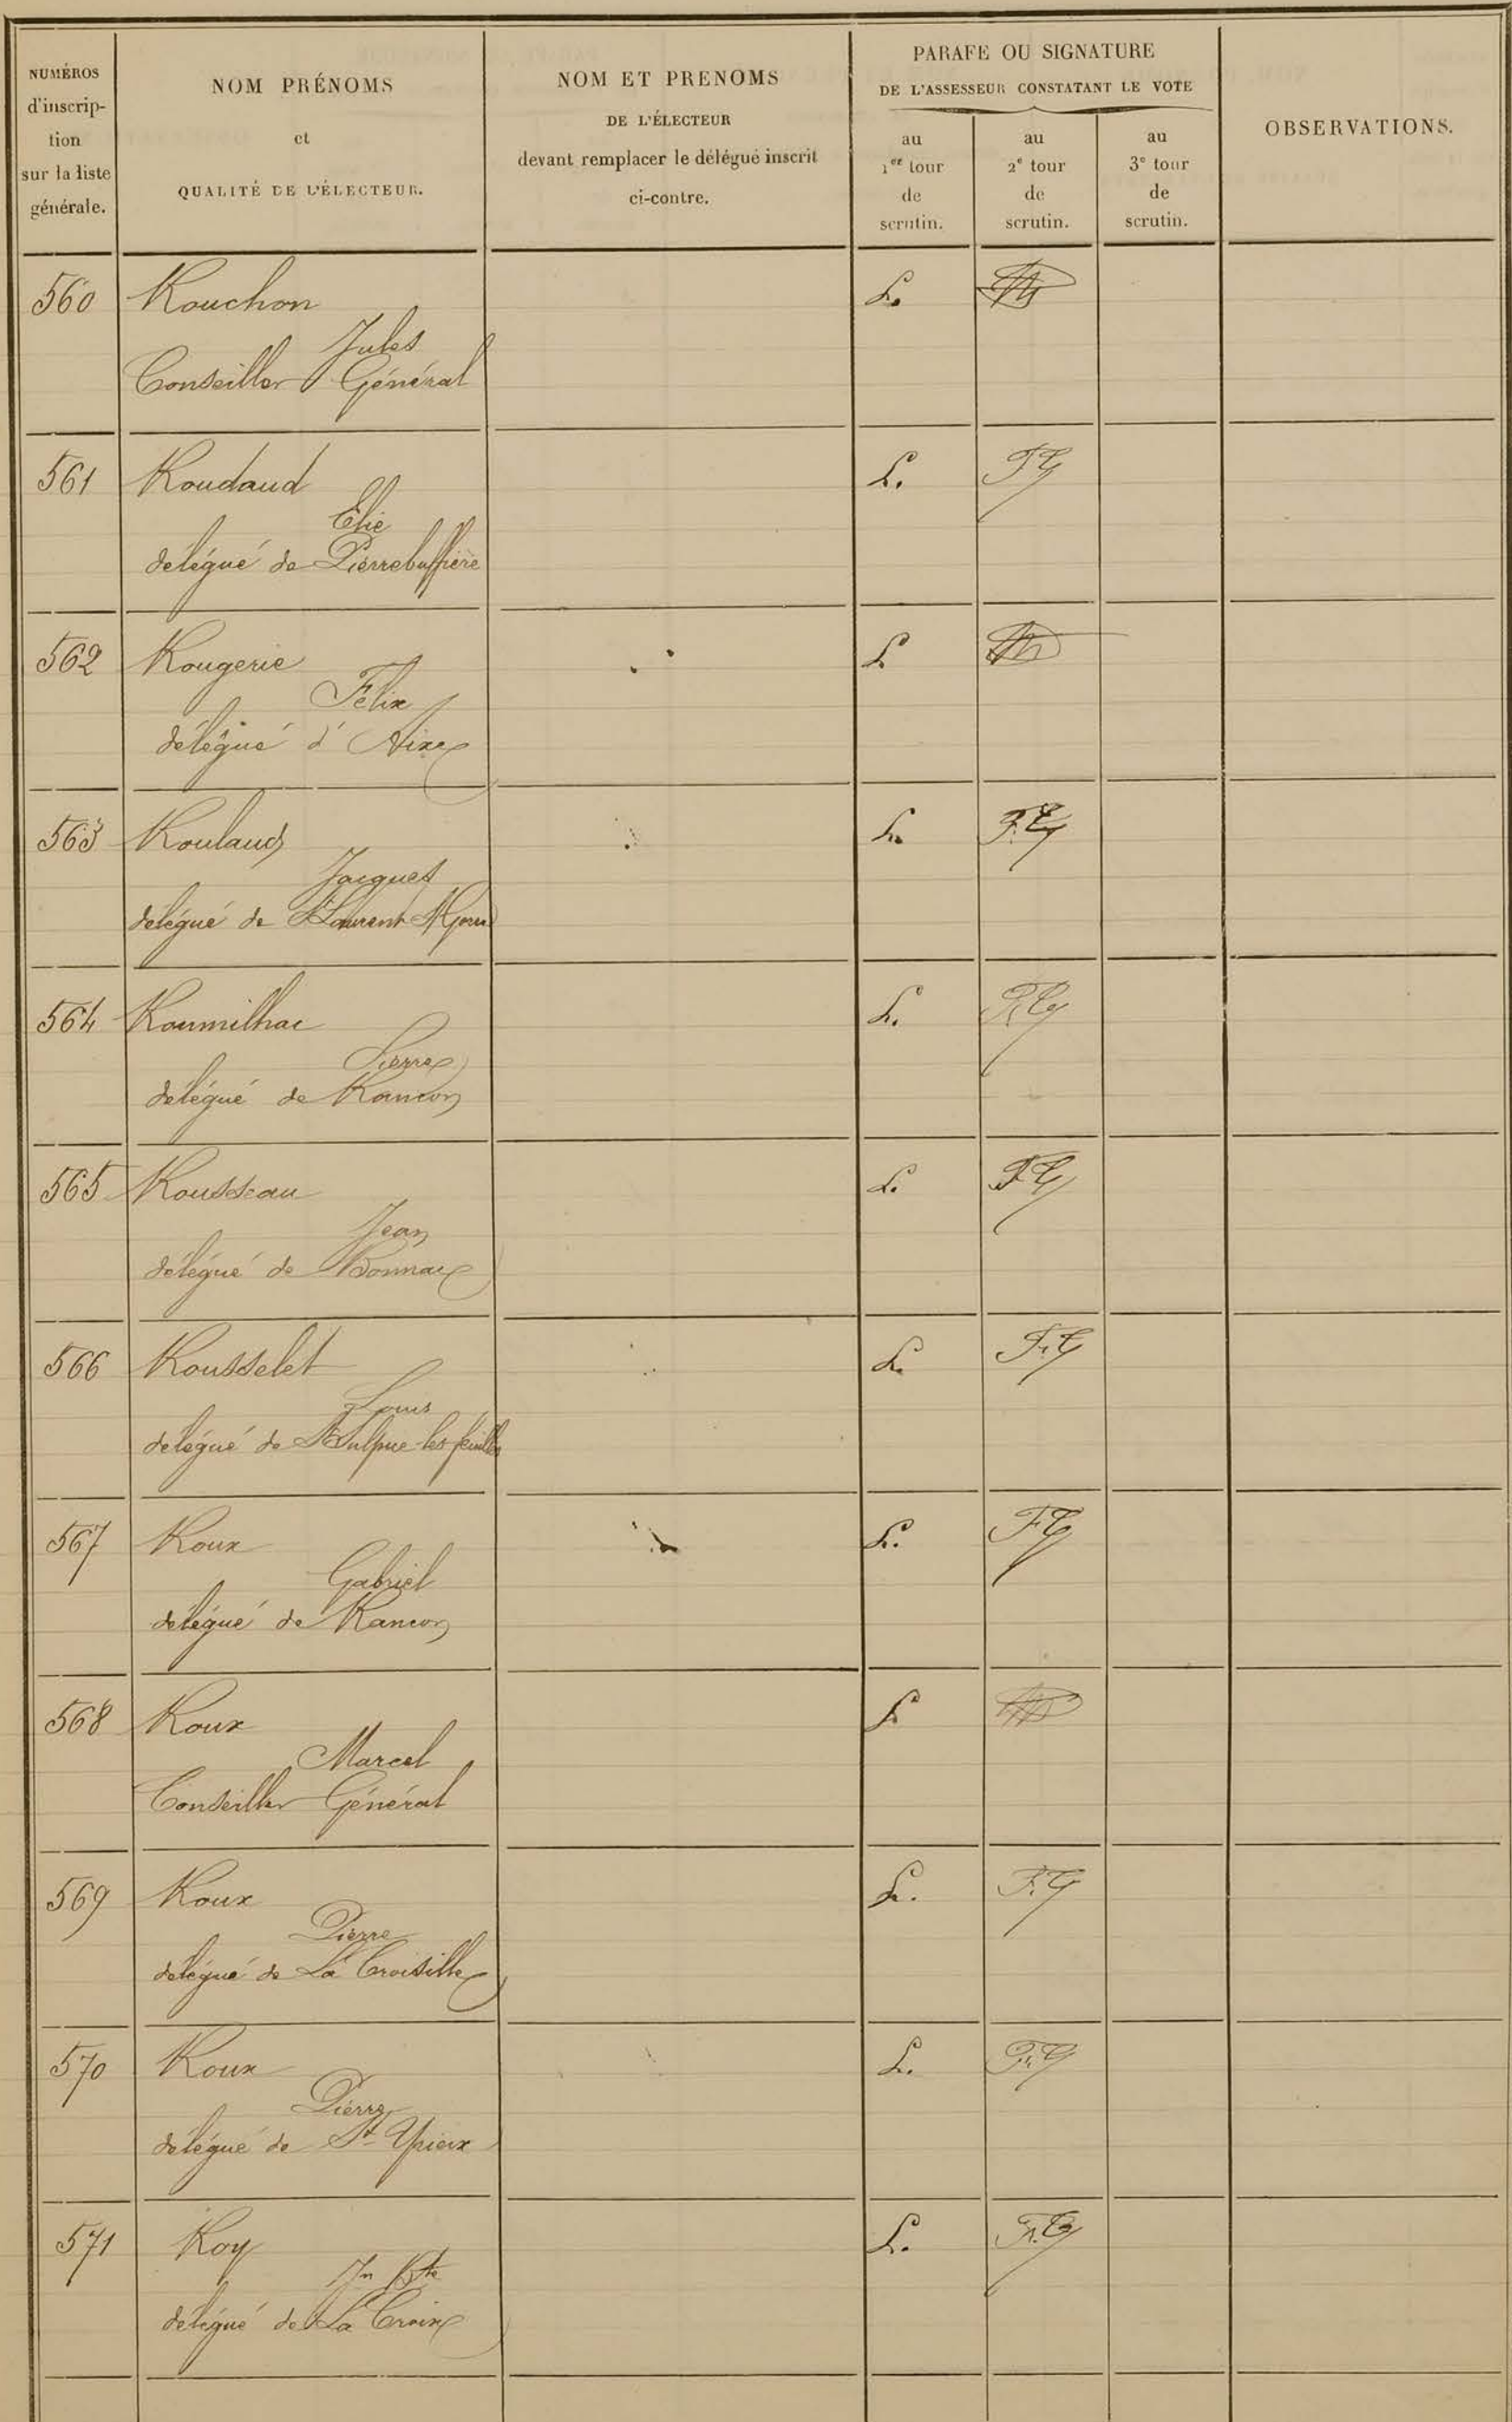 NUMÉROS
d'inscrip-
tion
sur la liste
générale.
NOM PRÉNOMS
et
QUALITÉ DE L'ÉLECTEUR.
NOM ET PRENOMS
DE L'ÉLECTEUR
devant remplacer le délégué inscrit
ci-contre.
PARAFE OU SIGNATURE
DE L'ASSESSEUR CONSTATANT LE VOTE
au
1er tour
de
scrutin.
au
2e tour
de
scrutin.
au
3e tour
de
scrutin.
OBSERVATIONS.
560 Rouchon L.
Jules
Conseiller Général
561 Roudaud L.
Elie
délégué de Pierrebuffière
562 Rougerie L
Félix
délégué d'Aixe
563 Roulaud L.
Jacques
délégué de St Laurent St Gorre
564 Roumilhac L.
Pierre
délégué de Rancon
565 Rousseau L.
Jean
délégué de Bonnac
566 Rousselet L.
Louis
délégué de St Sulpice les feuilles
567 Roux L.
Gabriel
délégué de Rancon
568 Roux L
Marcel
Conseiller Général
569 Roux L.
Pierre
délégué de La Croisille
570 Roux L.
Pierre
délégué de St Yrieix
571 Roy L.
Jn Bte
délégué de La Croix